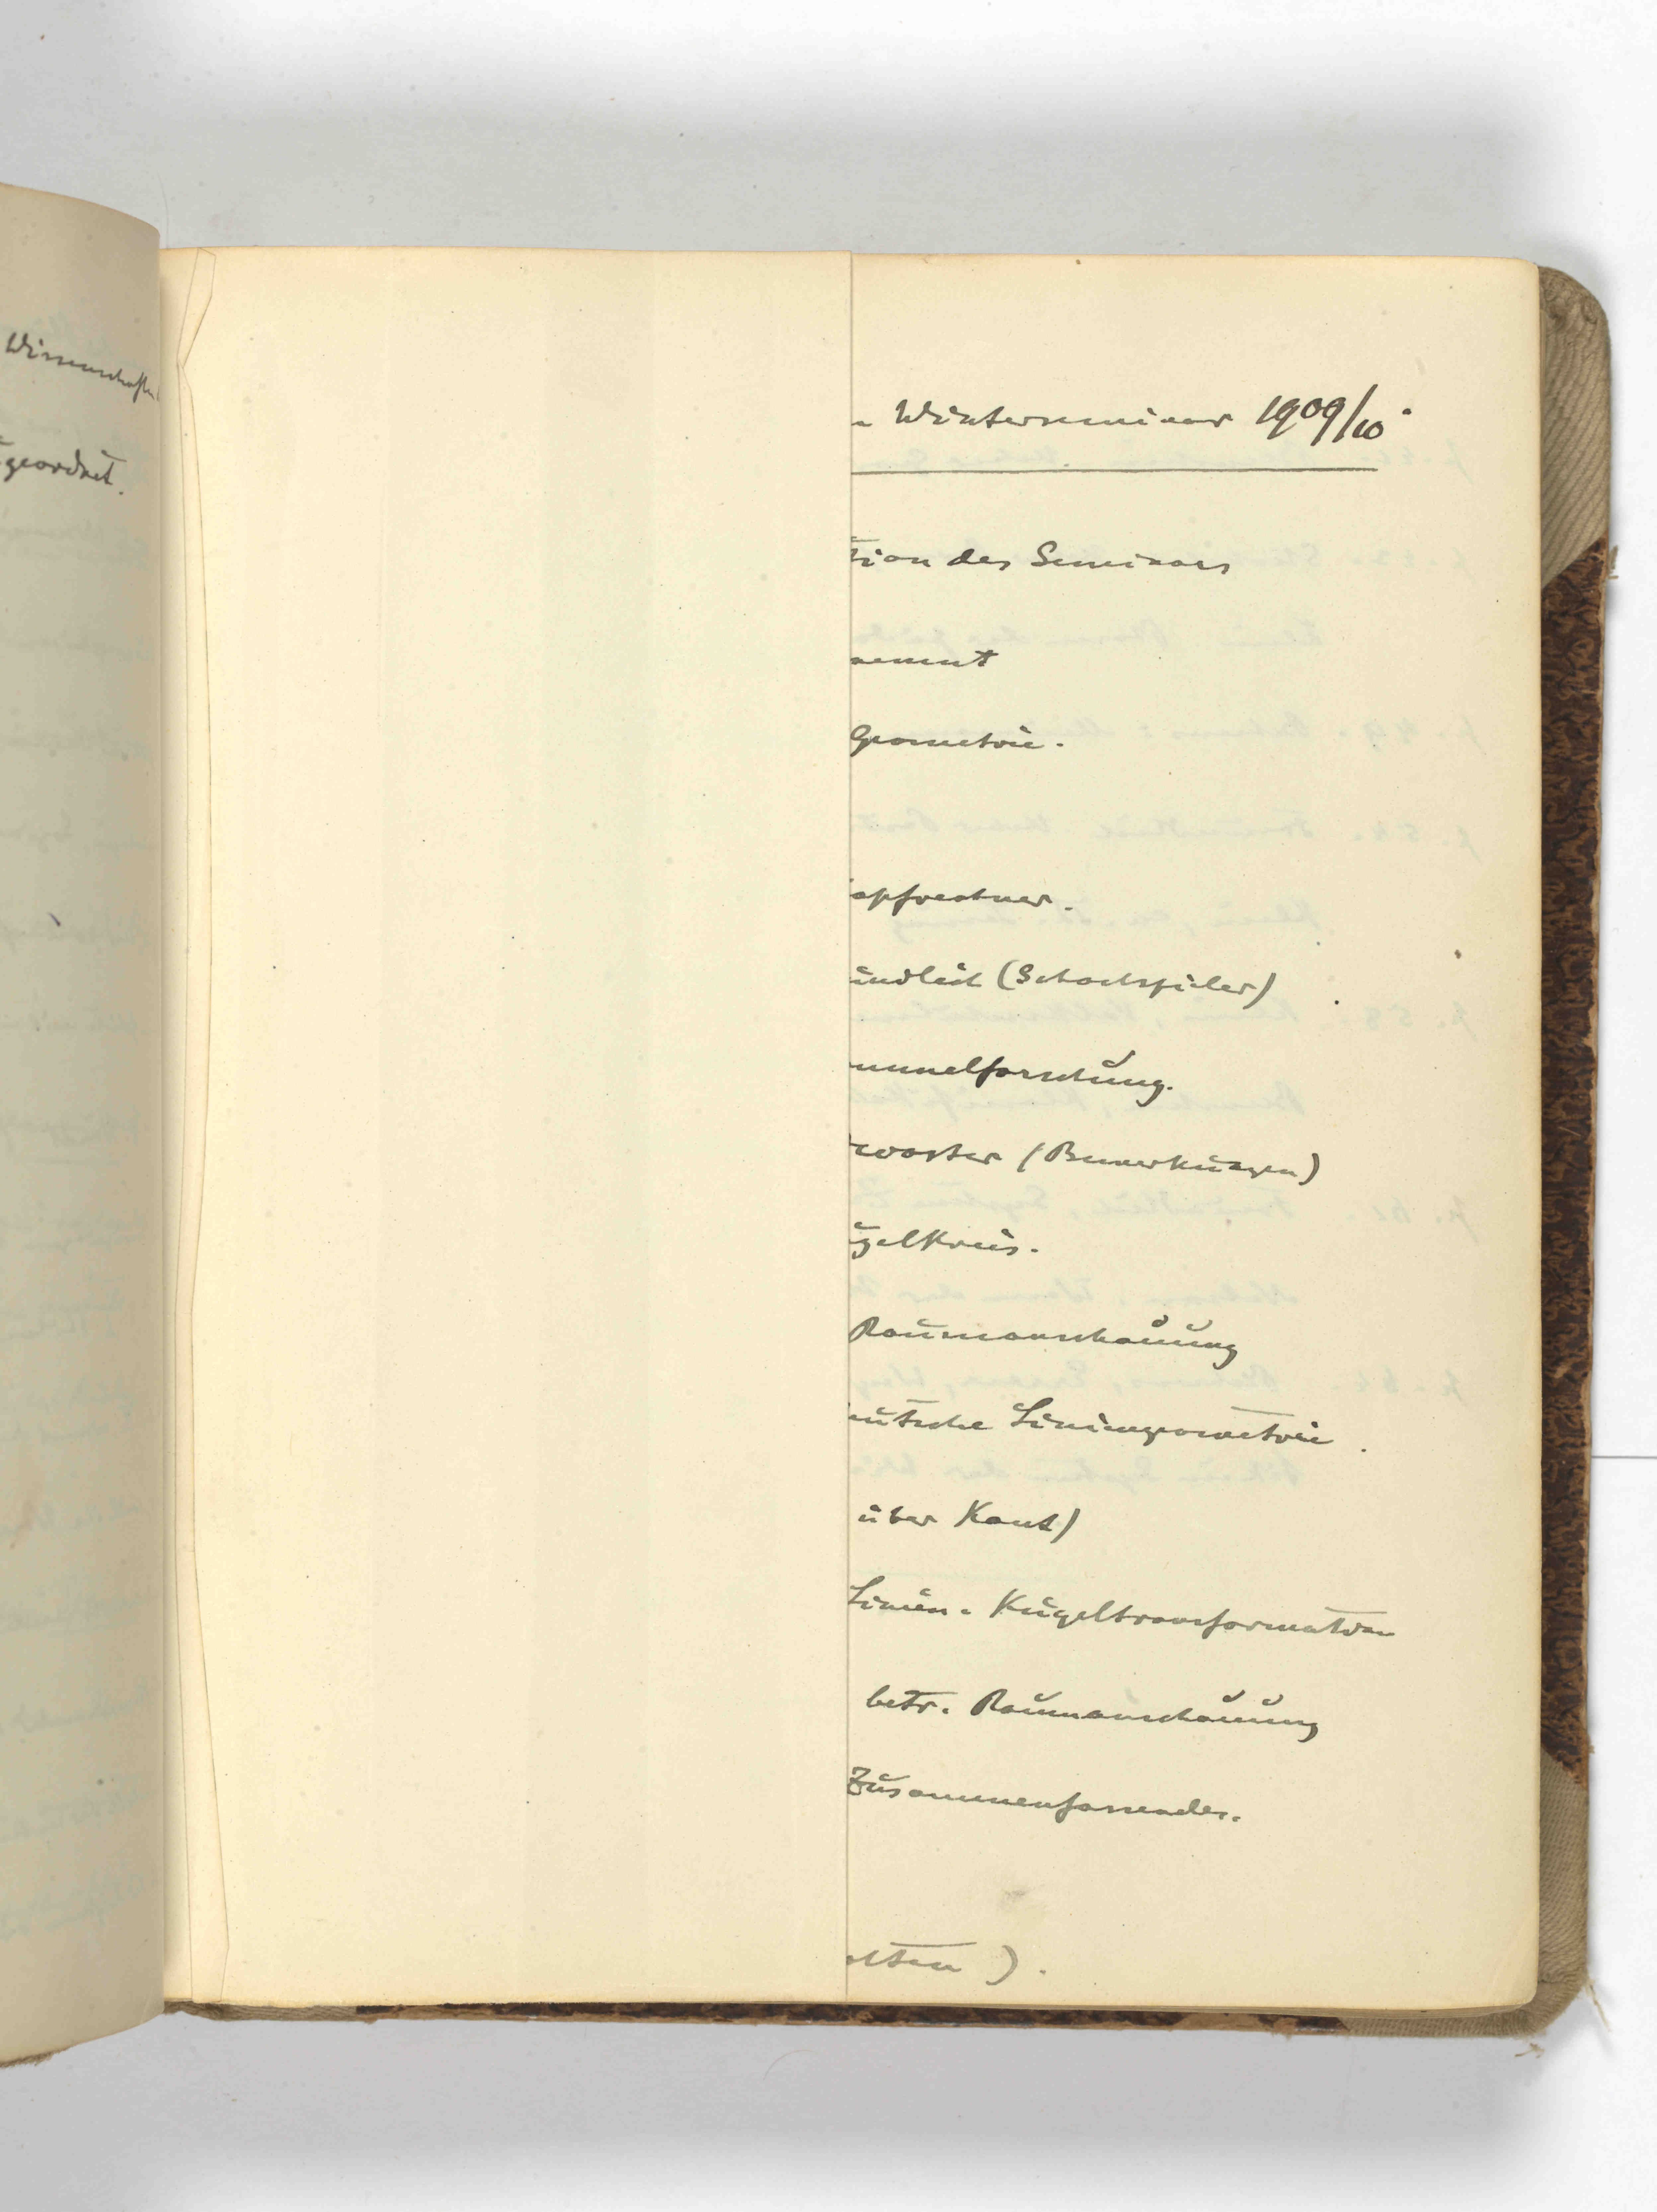 Wissenschaften
geordnet.
Winterseminar 1909/10.
tion des Seminars
nement
Geometrie.
opfrechner.
ündlich (Schachspieler)
mmelforschung.
worter (Bemerkungen)
gelkreis.
Raumanschauung
Liniengeometrie.
über Kant)
Linien- Kugeltransformation
betr. Raumanschauung
Zusammenfassendes.